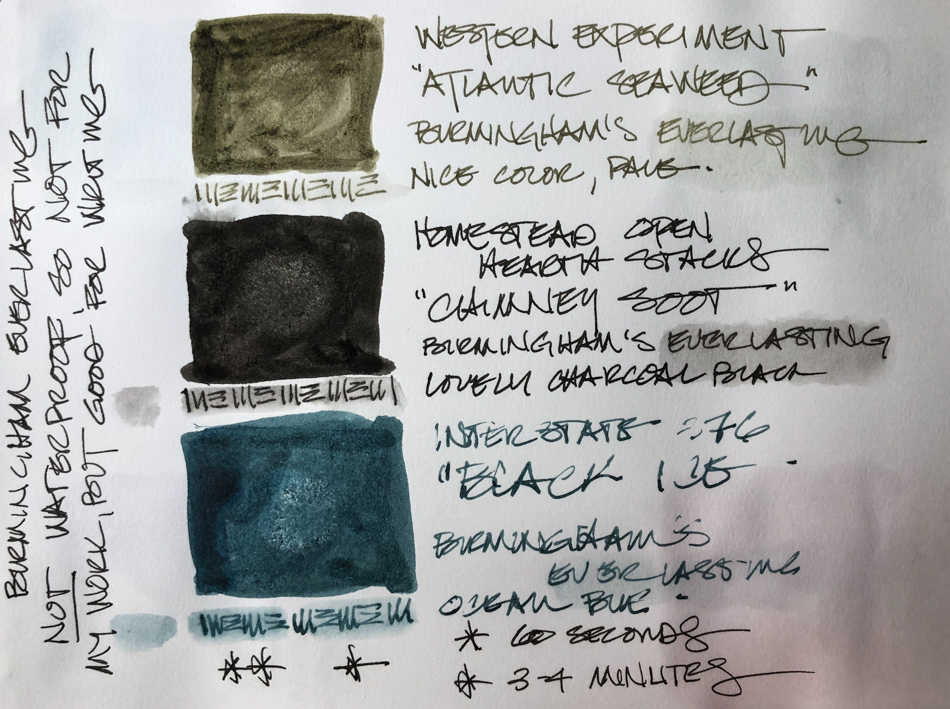 WESTERN EXPERIMENT
"ATLANTIC SEAWEED"
BIRMINGHAM'S EVERLASTING
NICE COLOR, PALE.
HOMESTEAD OPEN
HEARTH STACKS
"CHIMNEY SOOT"
BIRMINGHAM'S EVERLASTING
LOVELY CHARCOAL BLACK
INTERSTATE 376
"BLACK ICE"
BIRMINGHAM'S
EVERLASTING
OCEAN BLUE.
* 60 SECONDS
* 3-4 MINUTES
** *
BIRMINGHAM EVERLASTING
NOT WATERPROOF, SO NOT FOR
MY WORK, BUT GOOD FOR WRITING